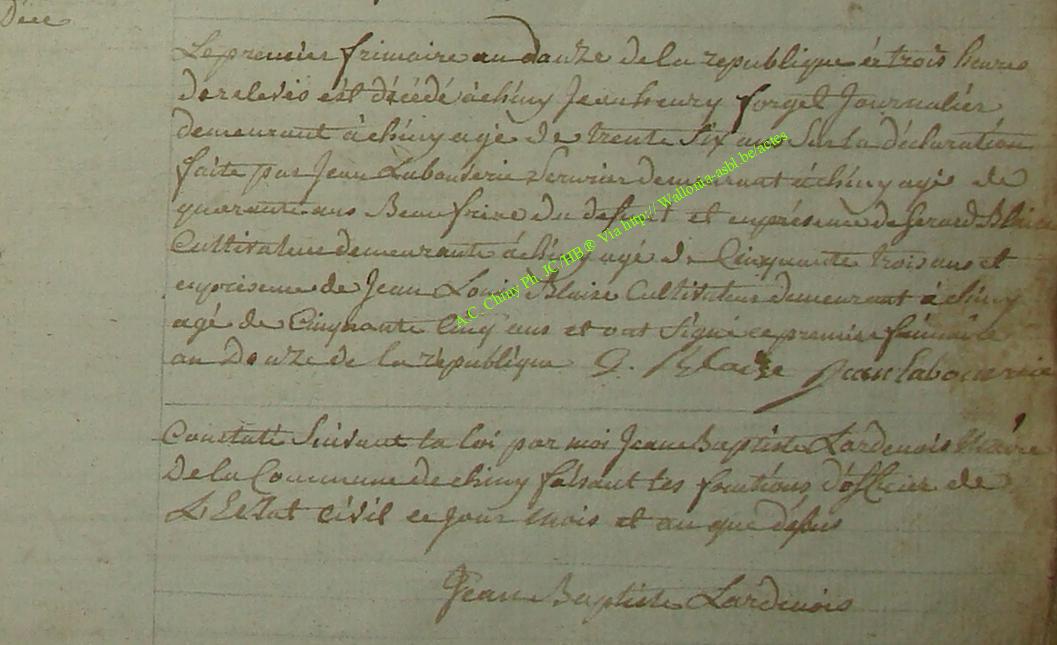 Déce
Le premier frimaire an douze de la republique à trois heures
de relevés est décédé à chiny Jean henry forget Journalier
demeurant à chiny agé de trente Six ans Sur la déclaration
faite par Jean Labouverie Serurier demeurant à chiny agé de
quarante ans Beaufrere du defunt et en présence de Gerard Blaise
Cultivateur demeurante à chiny agé de Cinquante trois ans et
en présence de Jean Louis Blaise Cultivateur demeurant à chiny
agé de Cinquante Cinq ans et ont Signé ce premier frimaire
an Douze de la republique G. Blaise Jean labouverie
Constaté Suivant la loi par moi Jean Baptiste Lardenois Maire
De la Commune de chiny faisant les fonctions d'officier de
L'Etat civil ce Jour mois et an que dessus
Jean Baptiste Lardenois
A.C. Chiny Ph. JC/HB.® Via http:// Wallonia-asbl.be/actes